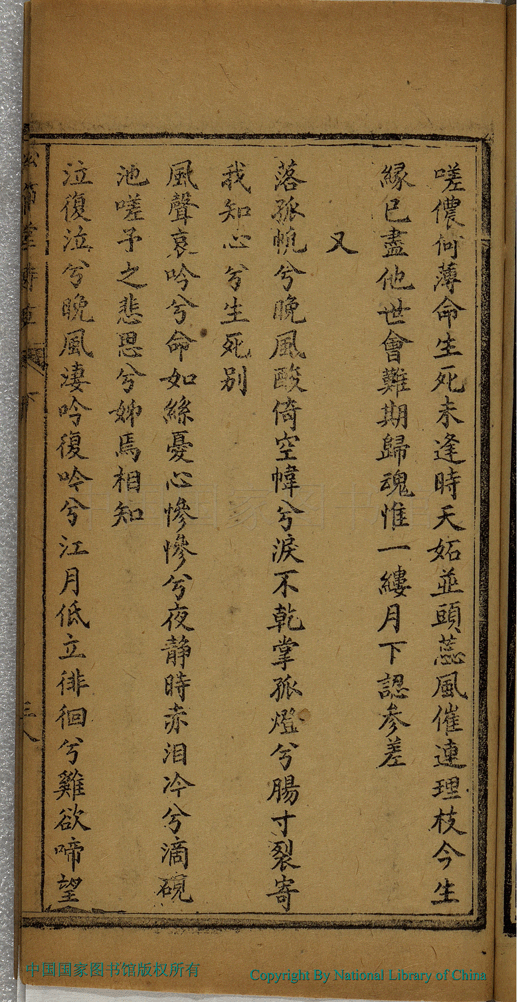 嗟儂何薄命生死未逢時天妬並頭蕊風催連理枝今生
緣已盡他世會難期歸魂惟一縷月下認參差
又
落孤帆兮晚風酸倚空幃兮淚不乾掌孤燈兮腸寸裂寄
我知心兮生死别
風聲哀吟兮命如絲憂心慘慘兮夜靜時赤泪冷兮滴硯
池嗟予之悲思兮姊焉相知
泣復泣兮晚風淒吟復吟兮江月低立徘徊兮雞欲啼望
三八
中国国家图书馆版权所有
Copyright By National Library of China